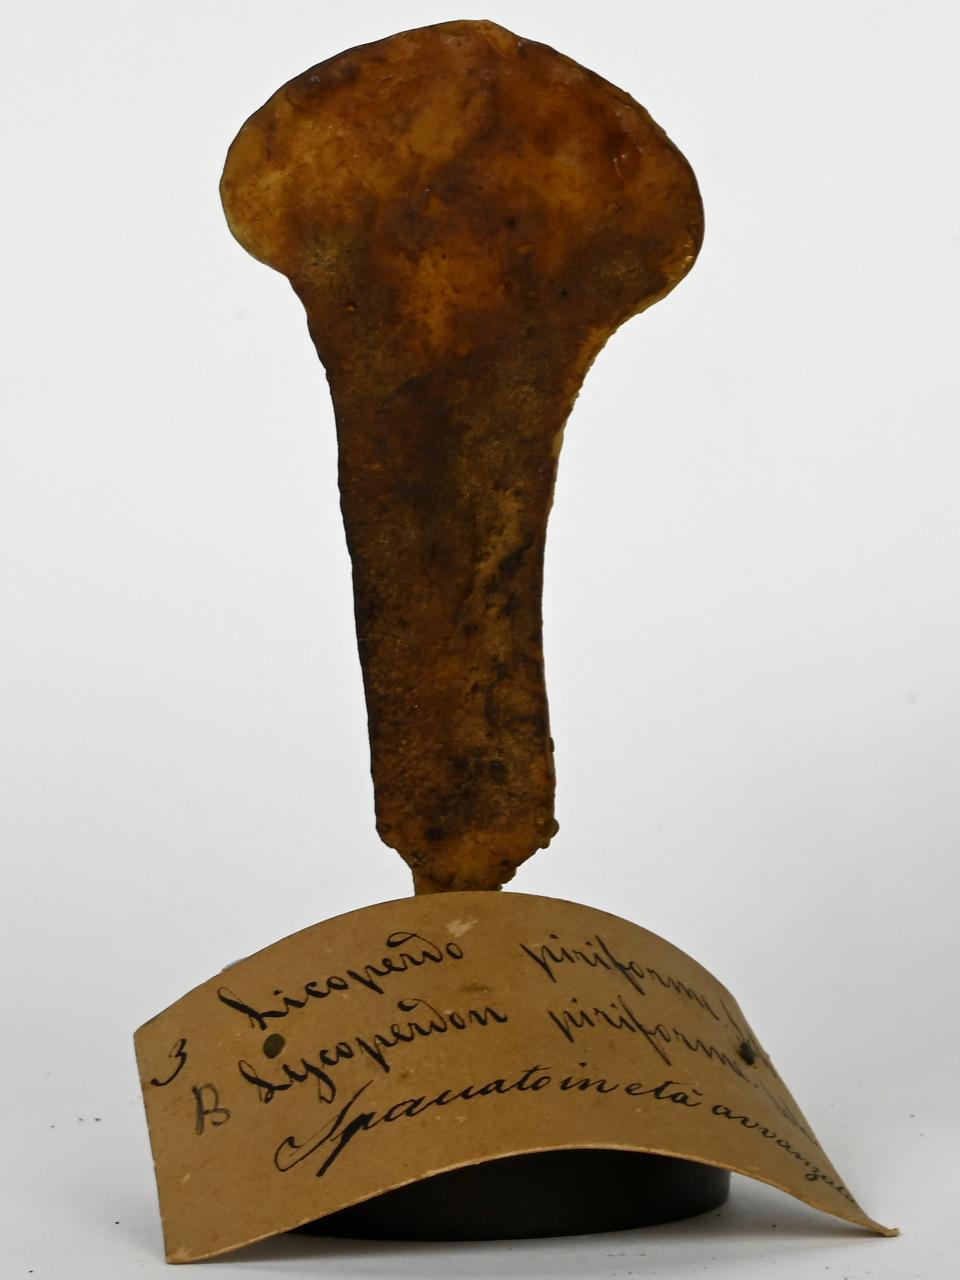 3 Licoperdo piriforme
B Lycoperdon piriforme
Spaccato in età avvanzata